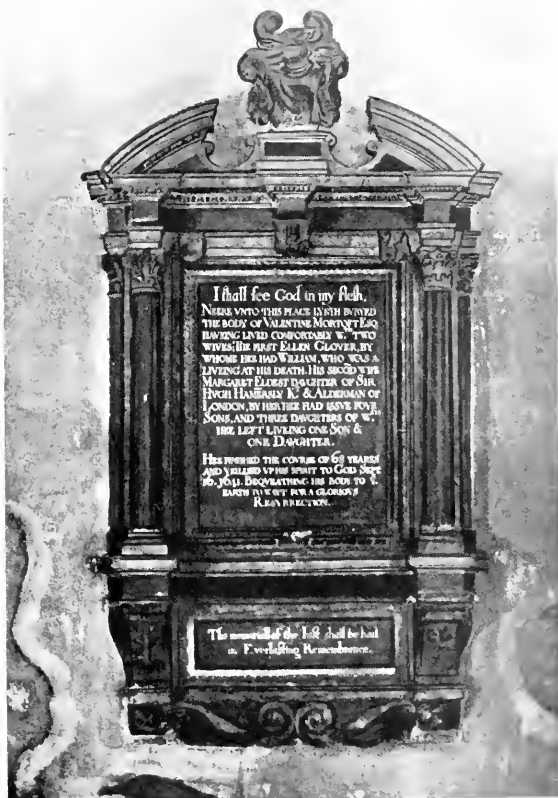 I shall see God in my flesh.
NEERE VNTO THIS PLACE LYETH BVRYED
THE BODY OF VALENTINE MORTOFT ESQ
HAVEING LIVED COMFORTABLY Wth TWO
WIVES; THE FIRST ELLEN GLOVER, BY
WHOME HEE HAD WILLIAM, WHO WAS A
LIVEING AT HIS DEATH. HIS SECOD WIFE
MARGARET ELDEST DAUGHTER OF SIR
HVGH HAMERSLY Kt. & ALDERMAN OF
LONDON, BY HER HEE HAD ISSVE FOVR
SONS, AND THREE DAUGHTERS OF Wch
HEE LEFT LIVEING ONE SON &
ONE DAUGHTER.
HEE FINISHED THE COVRSE OF YEARES
AND YEILDED VP HIS SPIRIT TO GOD SEPT
BEQVEATHING HIS BODY TO Ye
EARTH TO WAIT FOR A GLORIOVS
RESVRRECTION.
The memoriall of the Iust shall be had
in Everlasting Remembrance.